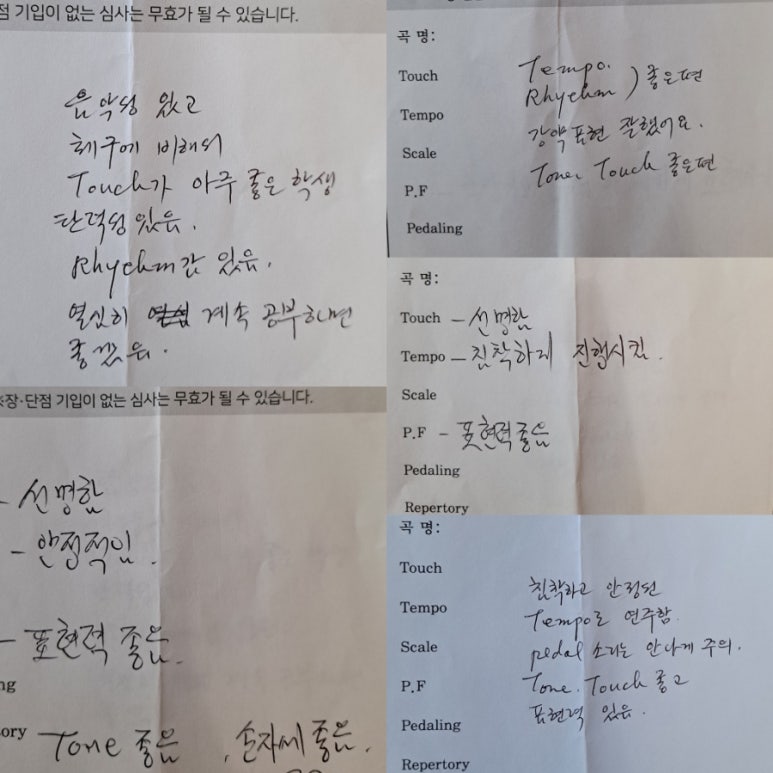 점 기입이 없는 심사는 무효가 될 수 있습니다.
음악성 있고
체구에 비해서
Touch가 아주 좋은 학생
탄력성 있음.
Rhychm감 있음.
열심히 계속 공부하면
좋겠음.
※장·단점 기입이 없는 심사는 무효가 될 수 있습니다.
- 선명함
- 안정적임.
- 표현력 좋음.
ng
ory Tone 좋음, 손자세 좋음.
곡 명:
Touch
Tempo
Scale
P.F
Pedaling
Tempo.
Rhychm ) 좋은편
강약표현 잘했어요.
Tone. Touch 좋은편
곡 명:
Touch - 선명함
Tempo - 침착하게 진행시킴.
Scale
P.F - 표현력좋음
Pedaling
Repertory
곡 명:
Touch
Tempo
Scale
P.F
Pedaling
Repertory
침착하고 안정된
Tempo로 연주함.
pedal 소리는 안나게 주의.
Tone. Touch 좋고
표현력 있음.